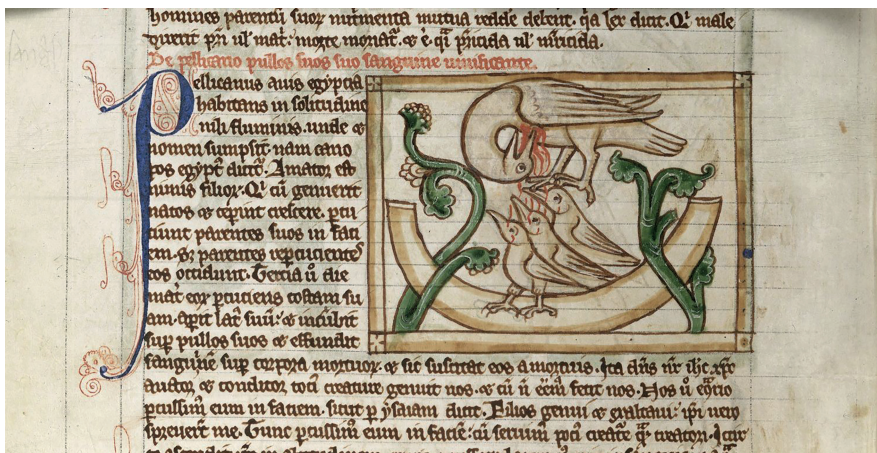 homines parentū suoꝝ nut̃menta mutua redde debent. q̃a lex dicit. Qͥ male
dixerit pr̃i ul' mat̃. morte moriat̃. ⁊ ē qͥ pr̃icida ul' mr̃icida.
De pellicano pullos suos suo sanguine uiuificante.
Pellicanus auis egyptia
habitans in solitudine
nili fluminis. unde ⁊
nomen sumpsit. nam cano
pos egypt̃ dicit̃. Amator est
nimis filioꝝ. Qͥ cū genuerit
natos ⁊ cep̃int crescere. ꝑcu
ciunt parentes suos in faci
em. Sꝫ parentes reꝑcucientes
eos occidunt. Tercia ū die
mat̃ eoꝝ ꝑcuciens costam su
am. aꝑit lat̃ suū. ⁊ incūbit
suꝑ pullos suos ⁊ effundit
sanguinē suꝑ corpora mortuoꝝ. ⁊ sic suscitat eos a mortuis. Ita dñs nr̃ ihc xp̃c
auctor ⁊ conditor toci creature genuit nos. ⁊ cū ñ eēm fecit nos. Nos ū
ꝑcussim eum in faciem. sicut ꝑ ysaiam dicit. Filios genui ⁊ exaltaui. ip̃i uero
spreuert̃ me. Tunc ꝑcussim eum in faciē. cū seruim poci creat̃e qͣ̃ creatori.